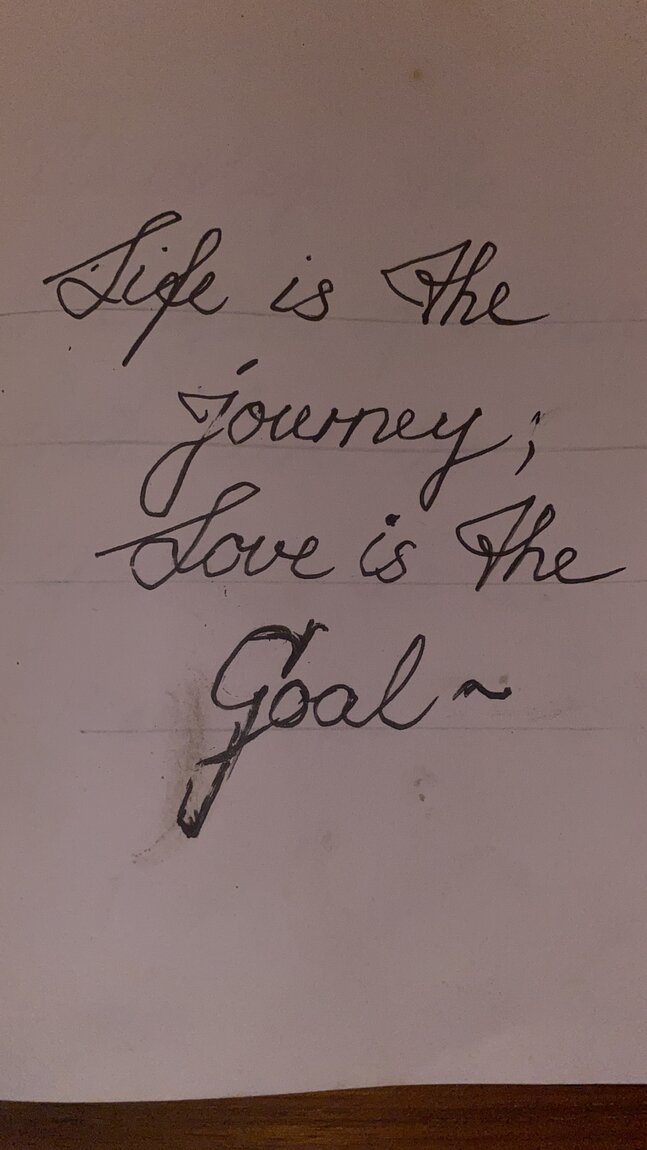 Life is the
journey;
Love is the
Goal ~